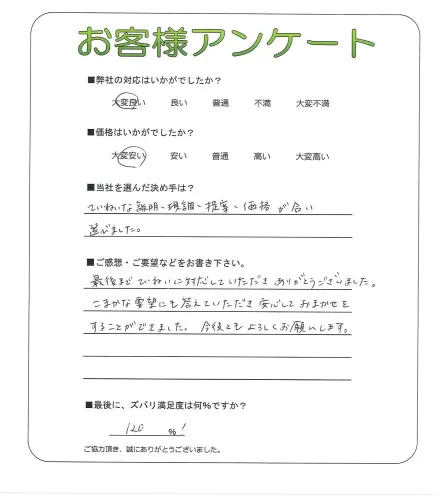 お客様アンケート
■弊社の対応はいかがでしたか？
大変良い 良い 普通 不満 大変不満
■価格はいかがでしたか？
大変安い 安い 普通 高い 大変高い
■当社を選んだ決め手は？
ていねいな説明・現調・提案・価格が合い
選びました。
■ご感想・ご要望などをお書き下さい。
最後までていねいに対応していただきありがとうございました。
こまかな要望にも答えていただき安心しておまかせを
することができました。今後ともよろしくお願いします。
■最後に、ズバリ満足度は何%ですか？
120 %!
ご協力頂き、誠にありがとうございました。